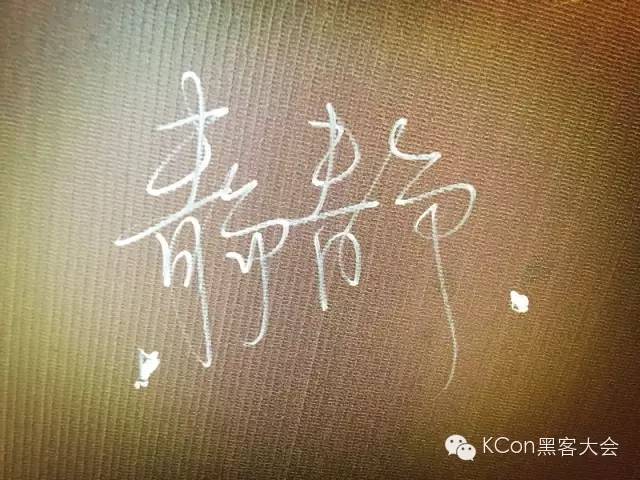 静静
KCon黑客大会